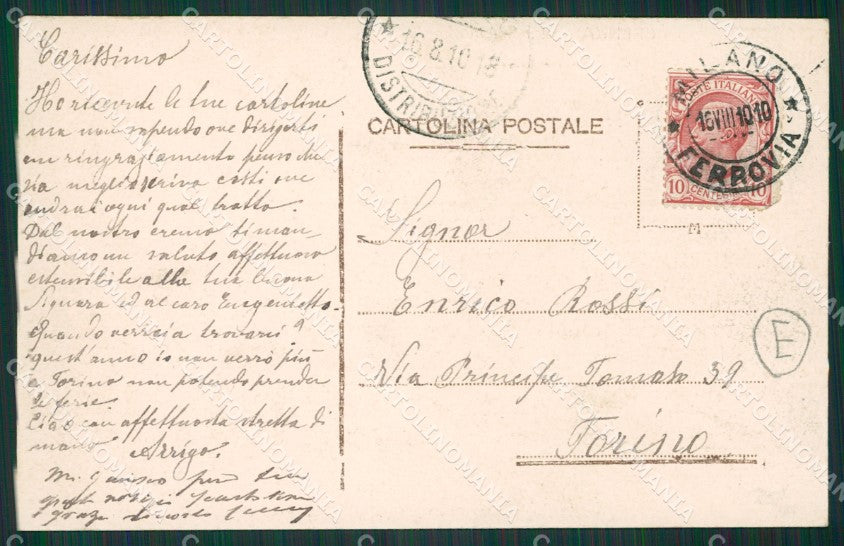 Carissimo
Ho ricevute le tue cartoline
ma non sapendo ove dirigerti
un ringraziamento penso che
sia meglio scriva costì ove
andrai ogni qual tratto.
Dal nostro eremo ti man
diamo un saluto affettuoso
estensibile alla tua buona
Signora ed al caro Eugenietto.
Quando verrai a trovarci?
quest'anno io non verrò più
a Torino non potendo prender
le ferie.
Ciao con affettuosta stretta di
mano
Arrigo.
16.8.10 18
DISTRIB
CARTOLINA POSTALE
MILANO
16 VIII 10 10
FERROVIA
POSTE ITALIANE
10 CENTESIMI 10
M
Signor
Enrico Rossi
Via Principe Tomaso 39
Torino
E
CARTOLINOMANIA